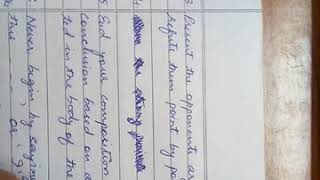 3 Present the opponents ar
refute them point by po
4
5 End your composition
conclusion based on a
ted in the body of the
Never begin, by saying
the